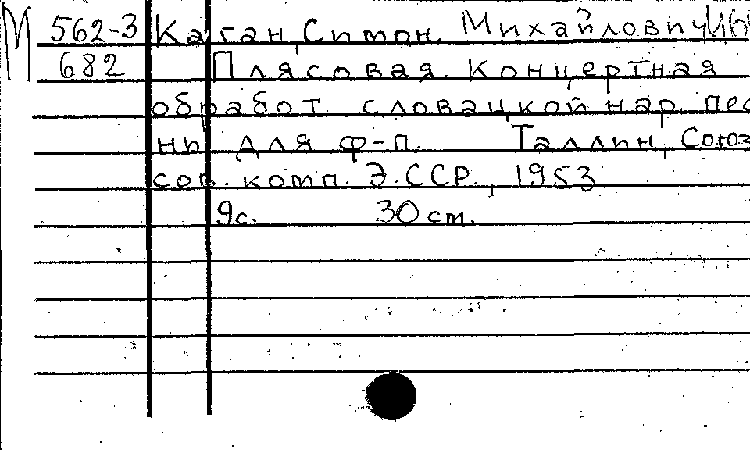 М 562-3 Каган, Симон Михайлович
682 Плясовая. Концертная
обработ. словацкой нар. пес
ни для ф-п. Таллин, Союз
сов. комп. Э.ССР., 1953
9с. 30 ст.